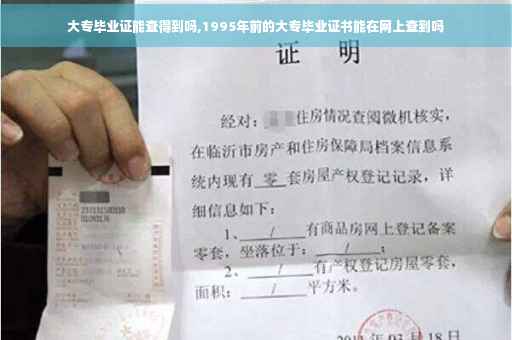 大专毕业证能查得到吗,1995年前的大专毕业证书能在网上查到吗
证 明
经对：住房情况查阅微机核实，
在临沂市房产和住房保障局档案信息系
统内现有 零 套房屋产权登记记录，详
细信息如下：
1、 / 有商品房网上登记备案
零套，坐落位于： / ；
2、 / 有产权登记房屋零套，
面积： / 平方米。
03月18日